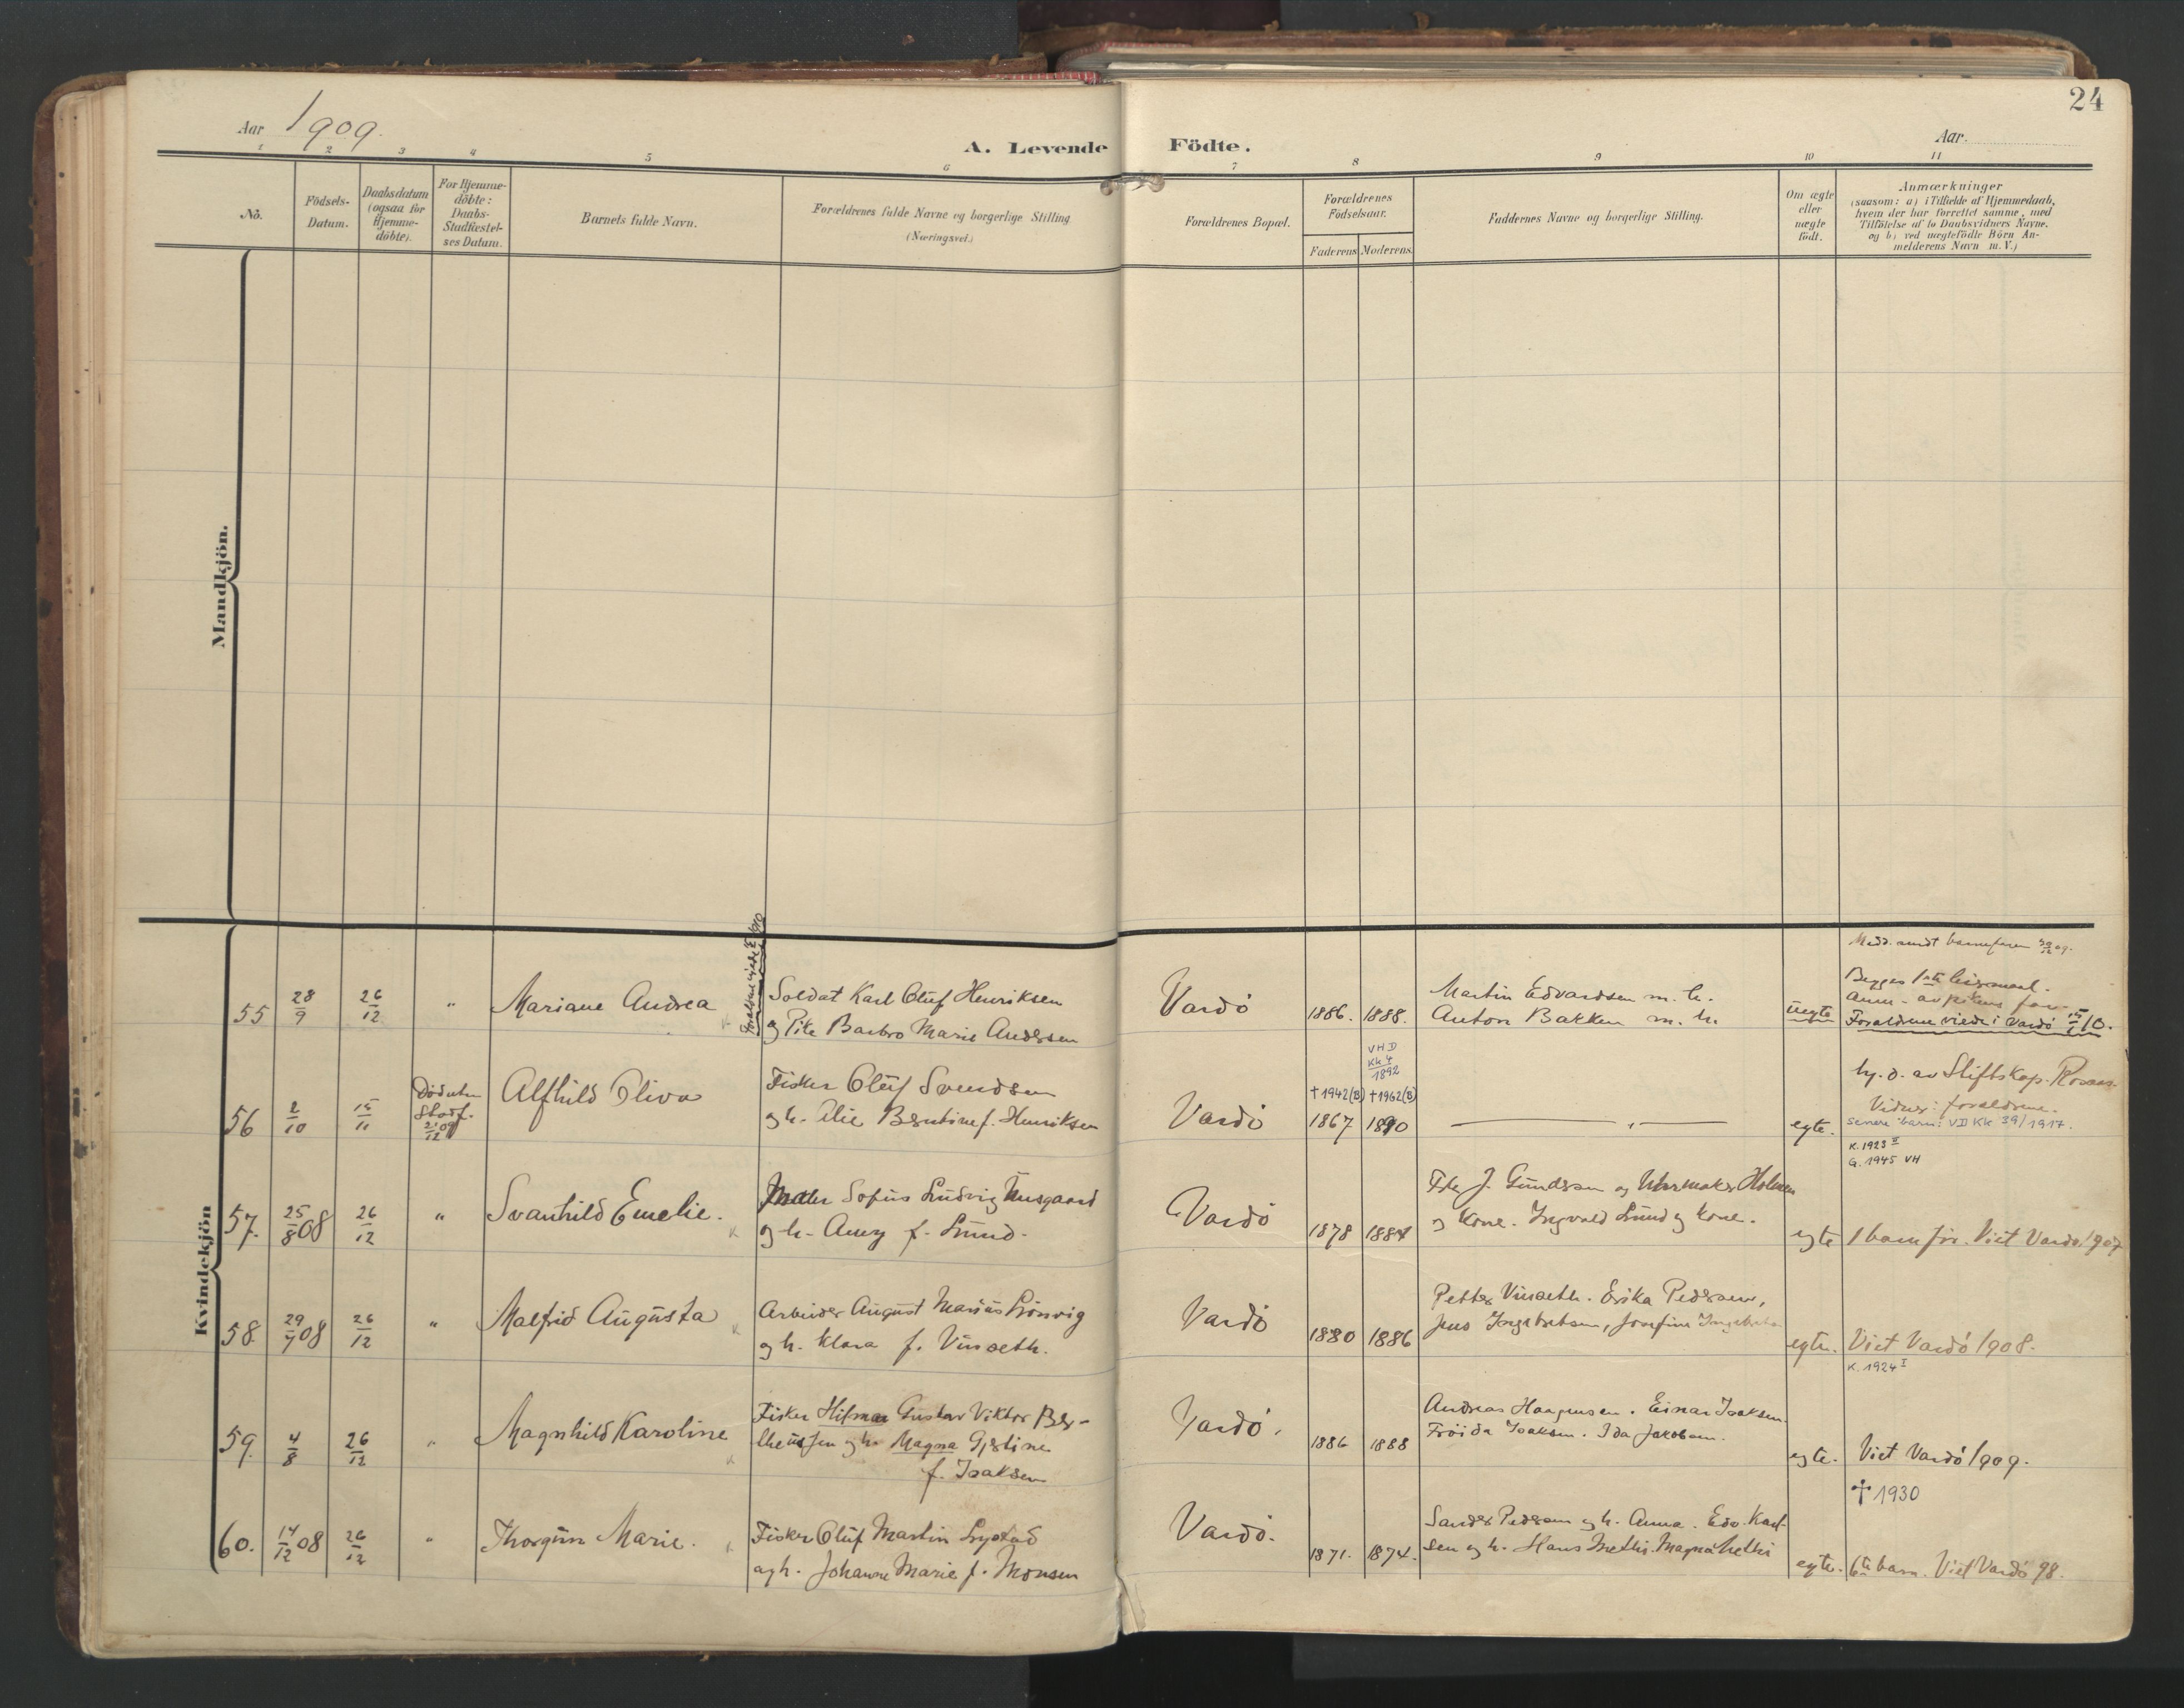 24
Aar 1909.
A. Levende Födte.
Aar.
1 2 3 4 5 6 7 8 9 10 11
No.
Födsels-
Datum.
Daabsdatum
(ogsaa for
Hjemme-
döbte).
For Hjemme-
döbte:
Daabs-
Stadfæstel-
ses Datum.
Barnets fulde Navn.
Forældrenes fulde Navne og borgerlige Stilling
(Næringsvei.)
Forældrenes Bopæl.
Forældrenes
Födselsaar.
Faderens Moderens.
Faddernes Navne og borgerlige Stilling.
Om ægte
eller
uægte
födt.
Anmærkninger
(saasom: a) i Tilfælde af Hjemmedaab,
hvem der har forrettet samme, med
Tilföielse af to Daabsvidners Navne,
og b) ved uægtefödte Börn An-
melderens Navn m. V.)
Mandkjön.
Kvindekjön
55 28/9 26/12 " Mariane Andrea
Soldat Karl Oluf Henriksen
og Pike Barbro Marie Andersen
Vardö 1886. 1888.
Martin Edvardsen m. h.
Anton Bakken m. h.
uegte
Medd. sendt barnefaren
Begges 1ste leiermaal.
Anm. av pikens far.
Foraldrene viede i Vardö 10.
56 2/10 15/11
Alfhild Oliva
Fisker Oluf Svendsen
og h. Alie Berntine f. Henriksen
Vardö
VHD
Kk 4
1892
†1942(B) †1962(B)
1867 1890
— " —
egte.
hj. d. av Stiftskap.
Vidner: foraldrene.
senere barn: VD KK 39/1917.
K. 1923 II
G. 1945 VH
57. 25/8 08 26/12 " Svanhild Emelie.
Maler Sofus Ludvig
og h. Anny f. Lund.
Vardö 1878 1884
J. Gundersen og Uhrmaker Holmen
og Kone. Ingvald Lund og kone.
egte 1 barn för. Viet Vardö 1907
58. 29/7 08 26/12 " Malfrid Augusta
Arbeider August Marius Lönvig
og h. Klara f. Vinseth.
Vardö 1880 1886
Petter Vinseth. Erika Pedersen,
Jens Ingebretsen, Josefine Ingebretsen
egte. Viet Vardö 1908.
K. 1924 I
59. 4/8 26/12 " Magnhild Karoline
Fisker Hilmar Gustav Viktor Ber-
theussen og h. Magna Gjertine
f. Isaksen
Vardö. 1886 1888
Andreas Haagensen. Einar Isaksen.
Fröida Isaksen. Ida Jakobsen.
egte. Viet Vardö 1909.
† 1930
60. 14/12 08 26/12 " Thorgun Marie.
Fisker Oluf Martin Lystad
og h. Johanne Marie f. Monsen
Vardö. 1871. 1874.
Sander Pedersen og h. Anna. Edv. Karl-
sen og h. Hans Methi. Magna Methi
egte. 6te barn. Viet Vardö 98.